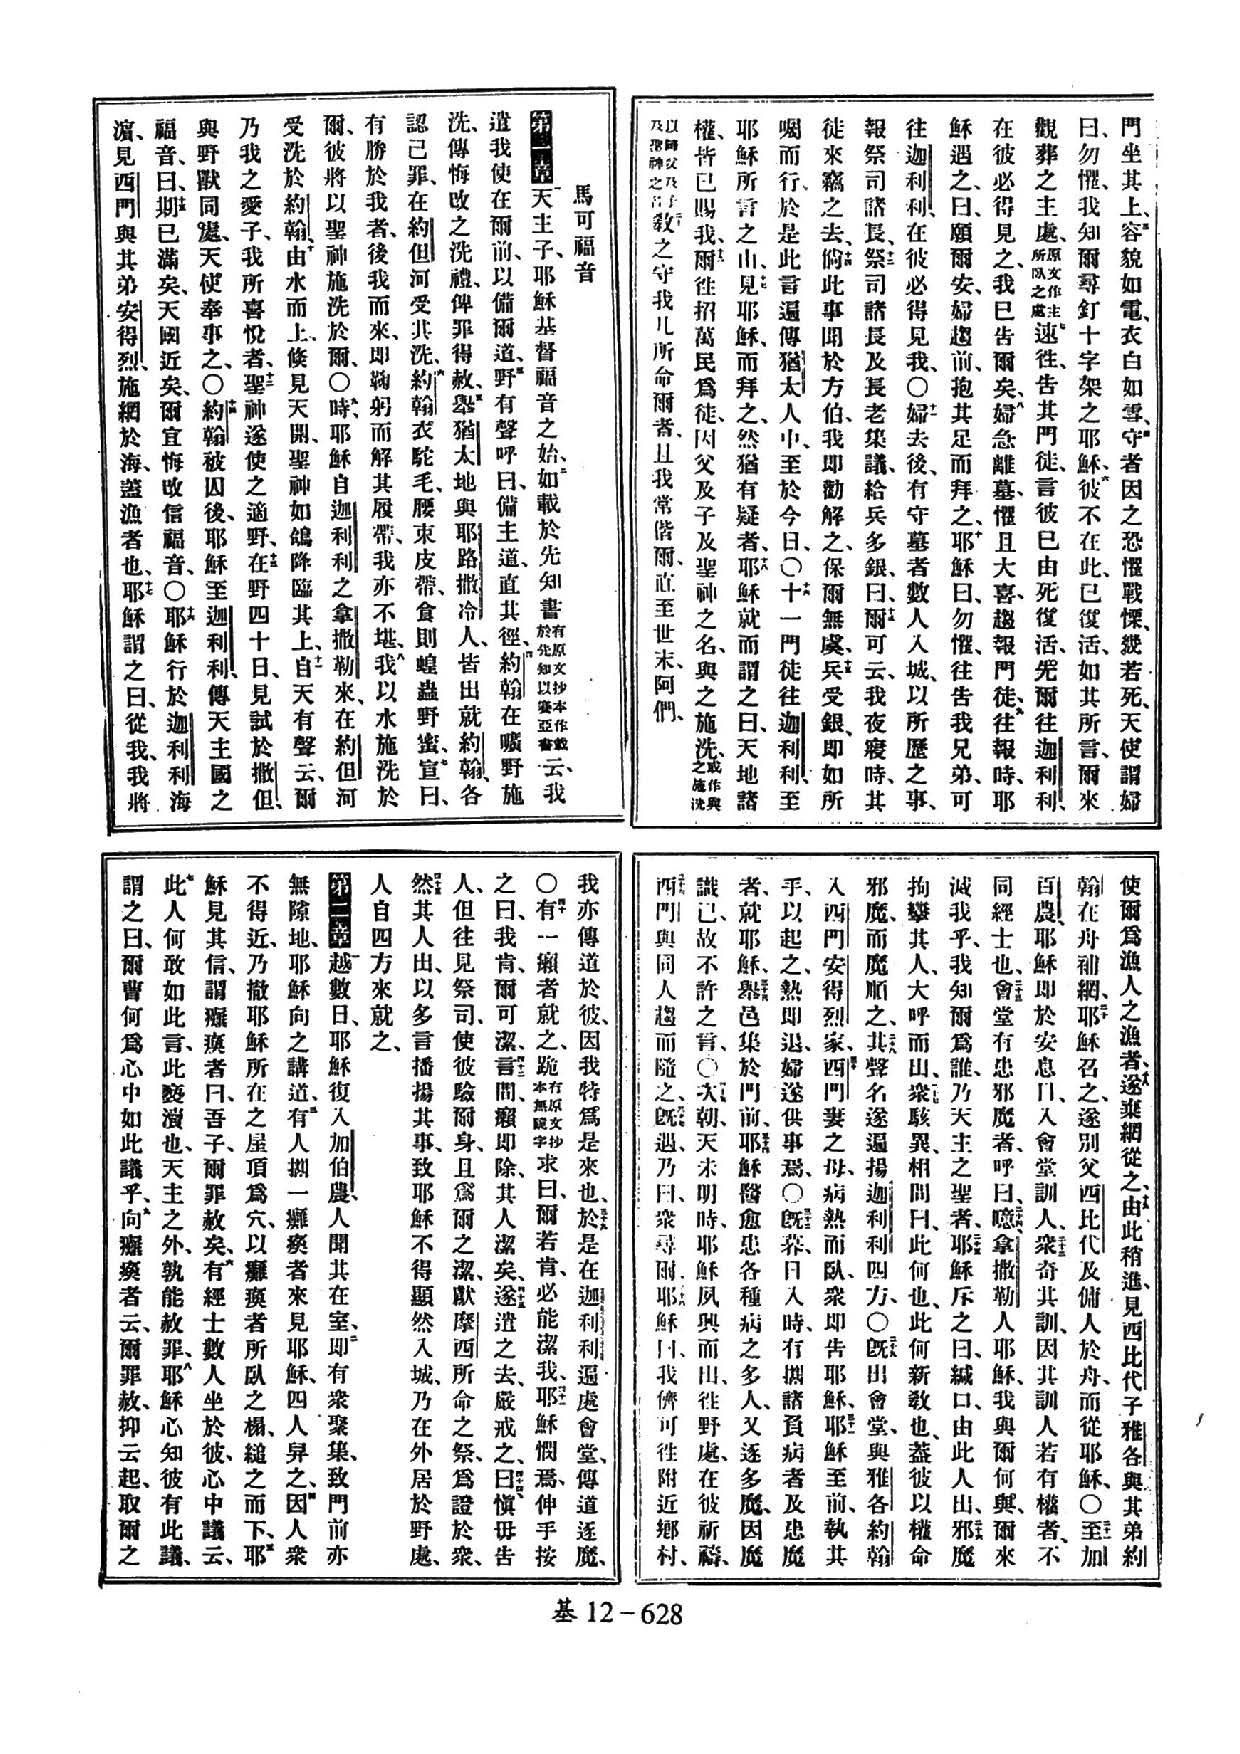 門坐其上、容貌如電、衣白如雪、守者因之恐懼戰慄、幾若死、天使謂婦
曰、勿懼、我知爾尋釘十字架之耶穌、彼不在此、已復活、如其所言、爾來
觀葬之主處、原文作主所臥之處速往告其門徒、言彼已由死復活、先爾往迦利利、
在彼必得見之、我已告爾矣、婦急離墓、懼且大喜、趨報門徒、往報時、耶
穌遇之、曰、願爾安、婦趨前、抱其足而拜之、耶穌曰、勿懼、往告我兄弟、可
往迦利利、在彼必得見我、○婦去後、有守墓者數人入城、以所歷之事、
報祭司諸長、祭司諸長及長老集議、給兵多銀、曰、爾可云、我夜寢時、其
徒來竊之去、倘此事聞於方伯、我即勸解之、保爾無虞、兵受銀、即如所
囑而行、於是此言遍傳猶太人中、至於今日、○十一門徒往迦利利、至
耶穌所言之山、見耶穌、而拜之、然猶有疑者、耶穌就而謂之曰、天地諸
權、皆已賜我、爾往招萬民爲徒、因父及子及聖神之名、與之施洗、或作與之施洗
以歸父及子及聖神之名敎之守我凡所命爾者、且我常偕爾、直至世末、阿們、
馬可福音
第一章天主子、耶穌基督福音之始、如載於先知書有原文抄本作載於先知以賽亞書云、我
遣我使在爾前、以備爾道、野有聲呼曰、備主道、直其徑、約翰在曠野施
洗、傳悔改之洗禮、俾罪得赦、舉猶太地與耶路撒冷人、皆出就約翰、各
認已罪、在約但河受其洗、約翰衣駝毛、腰束皮帶、食則蝗蟲野蜜、宣曰、
有勝於我者、後我而來、即鞠躬而解其履帶、我亦不堪、我以水施洗於
爾、彼將以聖神施洗於爾、○時、耶穌自迦利利之拿撒勒來、在約但河
受洗於約翰、由水而上、倏見天開、聖神如鴿降臨其上、自天有聲云、爾
乃我之愛子、我所喜悅者、聖神遂使之適野、在野四十日、見試於撒但、
與野獸同處、天使奉事之、○約翰被囚後、耶穌至迦利利、傳天主國之
福音、曰、期已滿矣、天國近矣、爾宜悔改信福音、○耶穌行於迦利利海
濱、見西門與其弟安得烈、施網於海、蓋漁者也、耶穌謂之曰、從我、我將
使爾爲漁人之漁者、遂棄網從之、由此稍進、見西比代子雅各與其弟約
翰在舟補網、耶穌召之、遂別父西比代及傭人於舟、而從耶穌、○至加
百農、耶穌即於安息日、入會堂訓人、衆奇其訓、因其訓人若有權者、不
同經士也、會堂有患邪魔者、呼曰、噫、拿撒勒人耶穌、我與爾何與、爾來
滅我乎、我知爾爲誰、乃天主之聖者、耶穌斥之曰、緘口、由此人出、邪魔
拘攣其人、大呼而出、衆駭異、相問曰、此何也、此何新敎也、蓋彼以權命
邪魔、而魔順之、其聲名遂遍揚迦利利四方、○旣出會堂、與雅各約翰
入西門安得烈家、西門妻之母、病熱而臥、衆即告耶穌、耶穌至前、執其
手、以起之、熱即退、婦遂供事焉、○旣暮、日入時、有攜諸負病者及患魔
者、就耶穌、舉邑集於門前、耶穌醫愈患各種病之多人、又逐多魔、因魔
識已、故不許之言、○次朝、天未明時、耶穌夙興而出、往野處、在彼祈禱、
西門與同人趨而隨之、旣遇、乃曰、衆尋爾、耶穌曰、我儕可往附近鄉村、
我亦傳道於彼、因我特爲是來也、於是在迦利利遍處會堂、傳道逐魔、
○有一癩者就之、跪有原文抄本無跪字求曰、爾若肯、必能潔我、耶穌憫焉、伸手按
之曰、我肯、爾可潔、言間、癩即除、其人潔矣、遂遣之去、嚴戒之、曰、愼毋告
人、但往見祭司、使彼驗爾身、且爲爾之潔、獻摩西所命之祭、爲證於衆、
然其人出、以多言播揚其事、致耶穌不得顯然入城、乃在外居於野處、
人自四方來就之、
第二章越數日、耶穌復入加伯農、人聞其在室、即有衆聚集、致門前亦
無隙地、耶穌向之講道、有人攜一癱瘓者來見耶穌、四人舁之、因人衆
不得近、乃撤耶穌所在之屋頂爲穴、以癱瘓者所臥之榻、縋之而下、耶
穌見其信、謂癱瘓者曰、吾子、爾罪赦矣、有經士數人坐於彼、心中議云、
此人何敢如此言、此褻瀆也、天主之外、孰能赦罪、耶穌心知彼有此議、
謂之曰、爾曹何爲心中如此議乎、向癱瘓者云、爾罪赦、抑云起、取爾之
基12-628